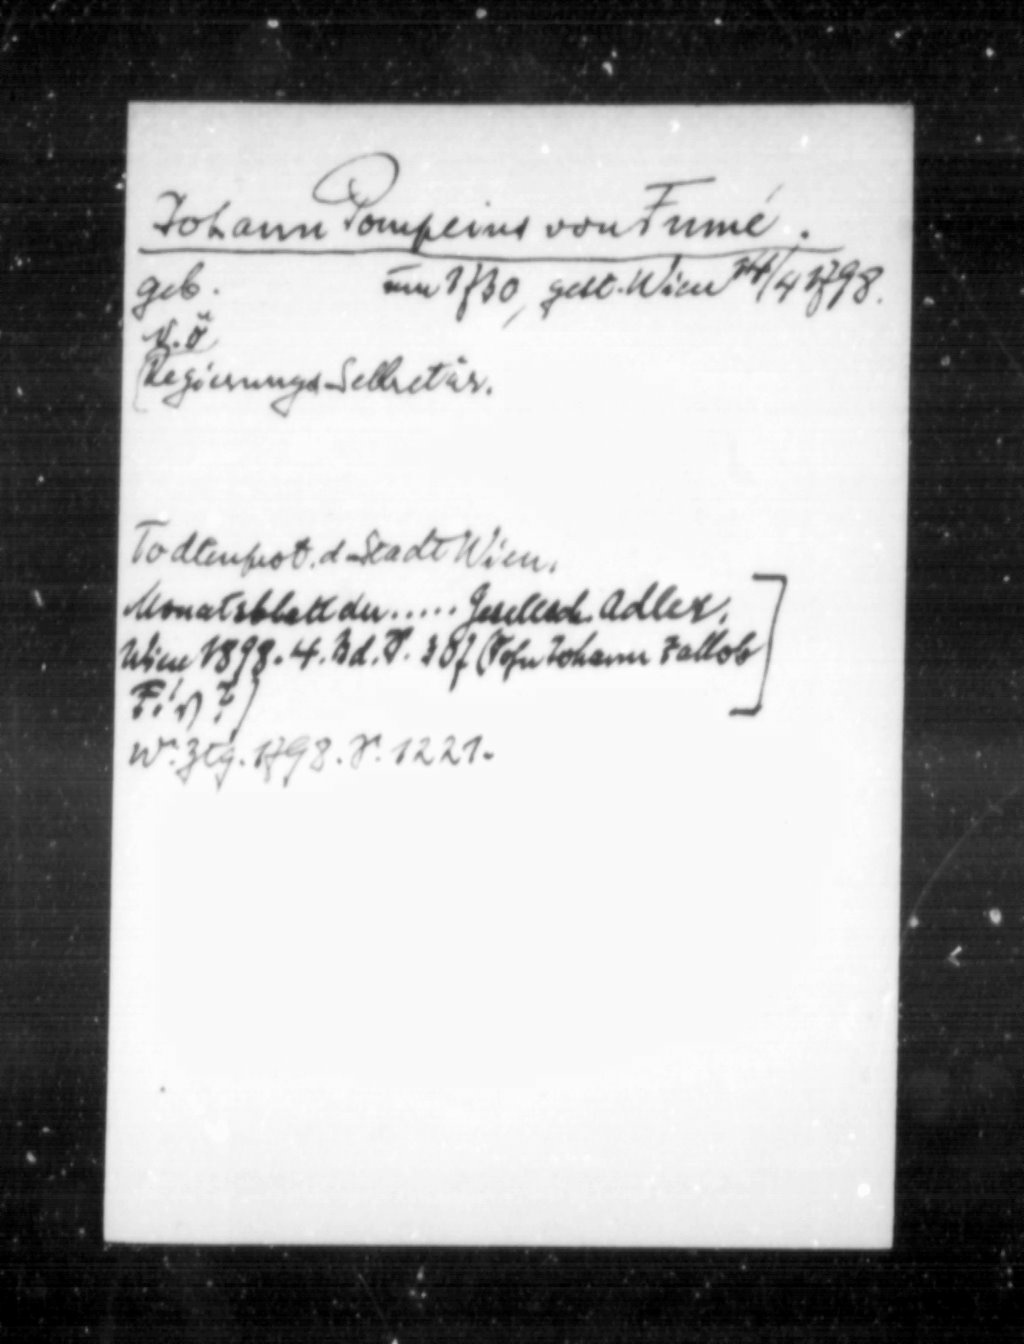 Johann Pompeius von Fumé.
geb. um 1730, gest. Wien 24/4 1798.
N.Ö
Regierungs-Sekretär.
Todtenprot. d. Stadt Wien.
Monatsblatt der ..... Gesellsch. Adler,
Wien 1898. 4. Bd. S. 307 (Sohn Johann Jakob
F.! v) ?)
Wr. Ztg. 1798. S. 1221.